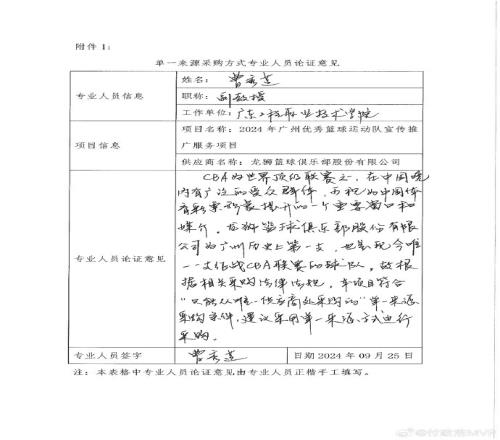 附件1:
单一来源采购方式专业人员论证意见
专业人员信息
姓名: 曾秀莲
职称: 副教授
工作单位: 广东工程职业技术学院
项目信息
项目名称: 2024年广州优秀篮球运动队宣传推
广服务项目
供应商名称: 龙狮篮球俱乐部股份有限公司
专业人员论证意见
CBA为世界顶级联赛之一, 在中国境
内有广泛的受众群体, 而视为中国体
育形象提升的一个重要窗口和
媒介。龙狮篮球俱乐部股份有限
公司为广州历史上第一支, 也是现今唯
一一支征战CBA联赛的球队。故根
据相关采购法律法规, 本项目符合
“只能从唯一供应商处采购的”单一来源
采购条件, 建议采用单一来源方式进行
采购。
专业人员签字
曾秀莲
日期2024年09月25日
注: 本表格中专业人员论证意见由专业人员正楷手工填写。
@付政浩MVP